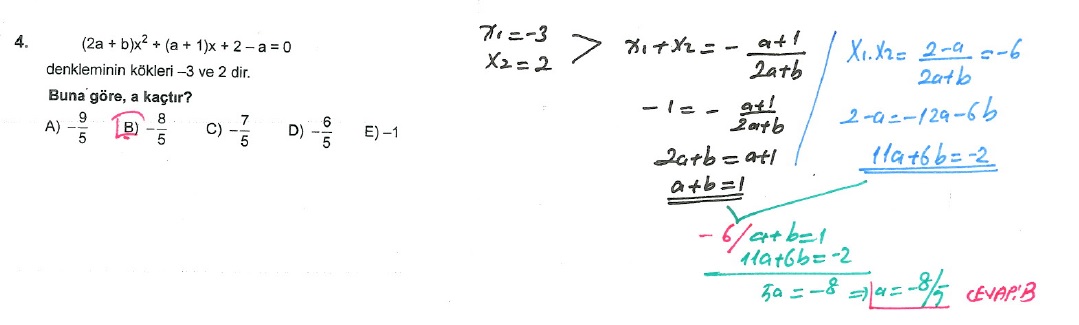 4. (2a + b)x² + (a + 1)x + 2 – a = 0
denkleminin kökleri –3 ve 2 dir.
Buna göre, a kaçtır?
A) –9/5 B) –8/5 C) –7/5 D) –6/5 E) –1
x₁ = -3
x₂ = 2
x₁ + x₂ = - a+1/2a+b
-1 = - a+1/2a+b
2a+b = a+1
a+b = 1
x₁.x₂ = 2-a/2a+b = -6
2-a = -12a-6b
11a+6b = -2
-6/ a+b=1
11a+6b=-2
5a = -8 ⇒ a = -8/5 CEVAP: B